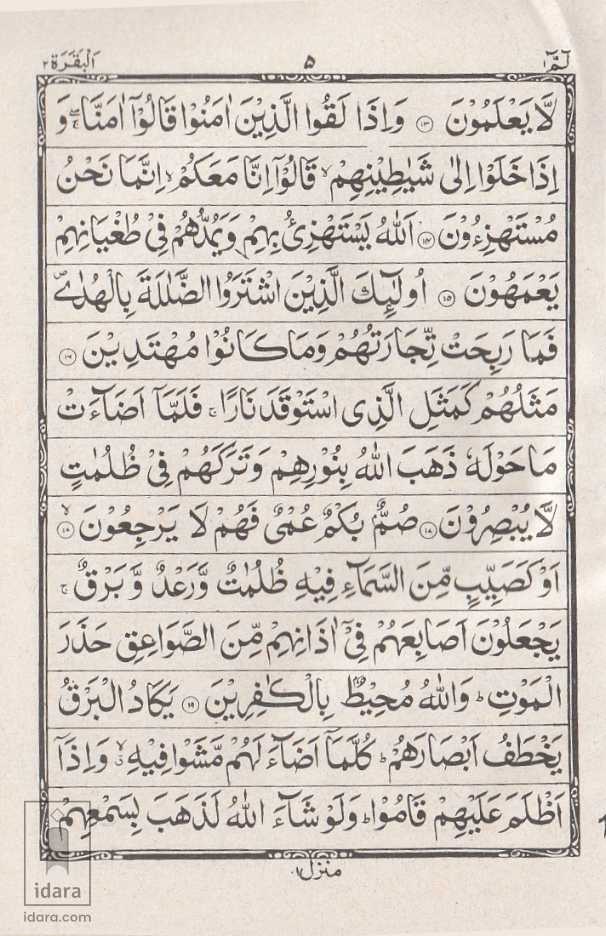 الٓمّٓ ١ ٥ اَلْبَقَرَة ٢
لَّا يَعْلَمُوْنَ ﴿۱۳﴾ وَاِذَا لَقُوا الَّذِيْنَ اٰمَنُوْا قَالُوْٓا اٰمَنَّا ۚۖ وَ
اِذَا خَلَوْا اِلٰى شَيٰطِيْنِهِمْ ۙ قَالُوْٓا اِنَّا مَعَكُمْ ۙ اِنَّمَا نَحْنُ
مُسْتَهْزِءُوْنَ ﴿۱۴﴾ اَللّٰهُ يَسْتَهْزِئُ بِهِمْ وَيَمُدُّهُمْ فِيْ طُغْيَانِهِمْ
يَعْمَهُوْنَ ﴿۱۵﴾ اُولٰٓئِكَ الَّذِيْنَ اشْتَرَوُا الضَّلٰلَةَ بِالْهُدٰى ۪
فَمَا رَبِحَتْ تِّجَارَتُهُمْ وَمَا كَانُوْا مُهْتَدِيْنَ ﴿۱۶﴾
مَثَلُهُمْ كَمَثَلِ الَّذِى اسْتَوْقَدَ نَارًا ۚ فَلَمَّآ اَضَآءَتْ
مَا حَوْلَهٗ ذَهَبَ اللّٰهُ بِنُوْرِهِمْ وَتَرَكَهُمْ فِيْ ظُلُمٰتٍ
لَّا يُبْصِرُوْنَ ﴿۱۷﴾ صُمٌّۢ بُكْمٌ عُمْيٌ فَهُمْ لَا يَرْجِعُوْنَ ﴿۱۸﴾ ۙ
اَوْ كَصَيِّبٍ مِّنَ السَّمَآءِ فِيْهِ ظُلُمٰتٌ وَّرَعْدٌ وَّبَرْقٌ ۚ
يَجْعَلُوْنَ اَصَابِعَهُمْ فِيْٓ اٰذَانِهِمْ مِّنَ الصَّوَاعِقِ حَذَرَ
الْمَوْتِ ؕ وَاللّٰهُ مُحِيْطٌۢ بِالْكٰفِرِيْنَ ﴿۱۹﴾ يَكَادُ الْبَرْقُ
يَخْطَفُ اَبْصَارَهُمْ ؕ كُلَّمَآ اَضَآءَ لَهُمْ مَّشَوْا فِيْهِ ۙۗ وَاِذَآ
اَظْلَمَ عَلَيْهِمْ قَامُوْا ؕ وَلَوْ شَآءَ اللّٰهُ لَذَهَبَ بِسَمْعِهِمْ
منزل ١
idara
idara.com